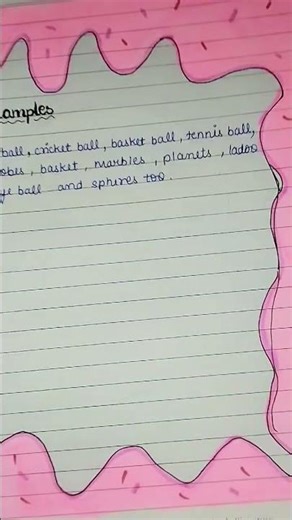 amples
ball, cricket ball, basket ball, tennis ball,
obes, basket, marbles, planets, ladoo
ye ball and sphires too.